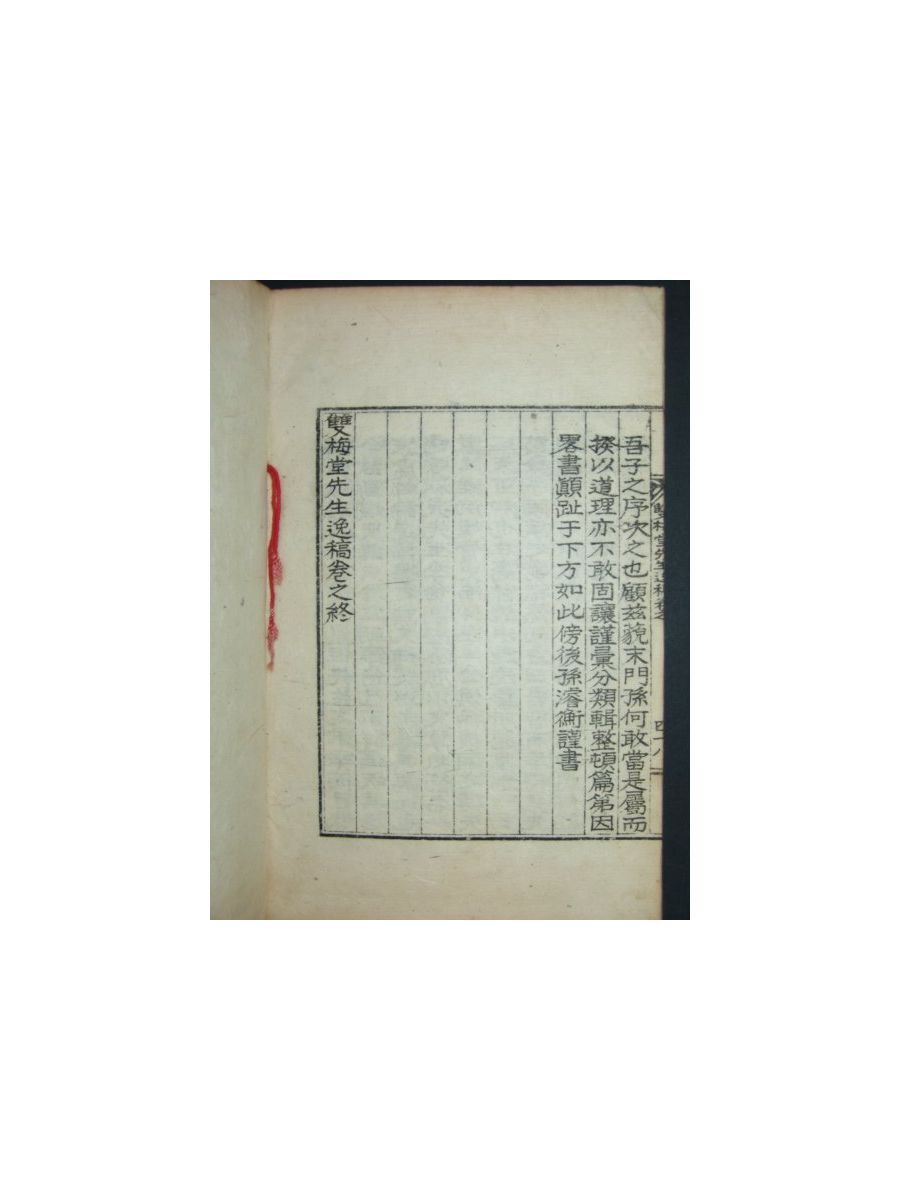 吾子之序次之也顧茲藐末門孫何敢當是屬而
揆以道理亦不敢固讓謹彙分類輯整頓篇第因
畧書顚趾于下方如此傍後孫濬衡謹書
雙梅堂先生逸稿卷之終
雙梅堂先生逸稿卷之
四十八